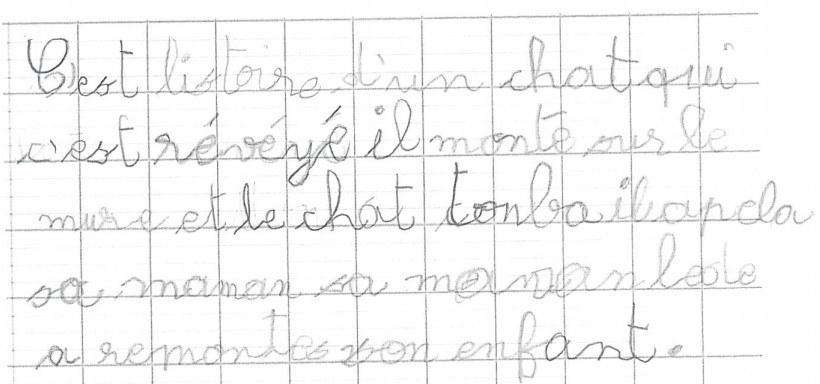 C'est listoire d'un chat qui
c'est révéyé il monte sur le
mure et le chat tonba il apela
sa maman sa maman l'ede
a remontes son enfant.